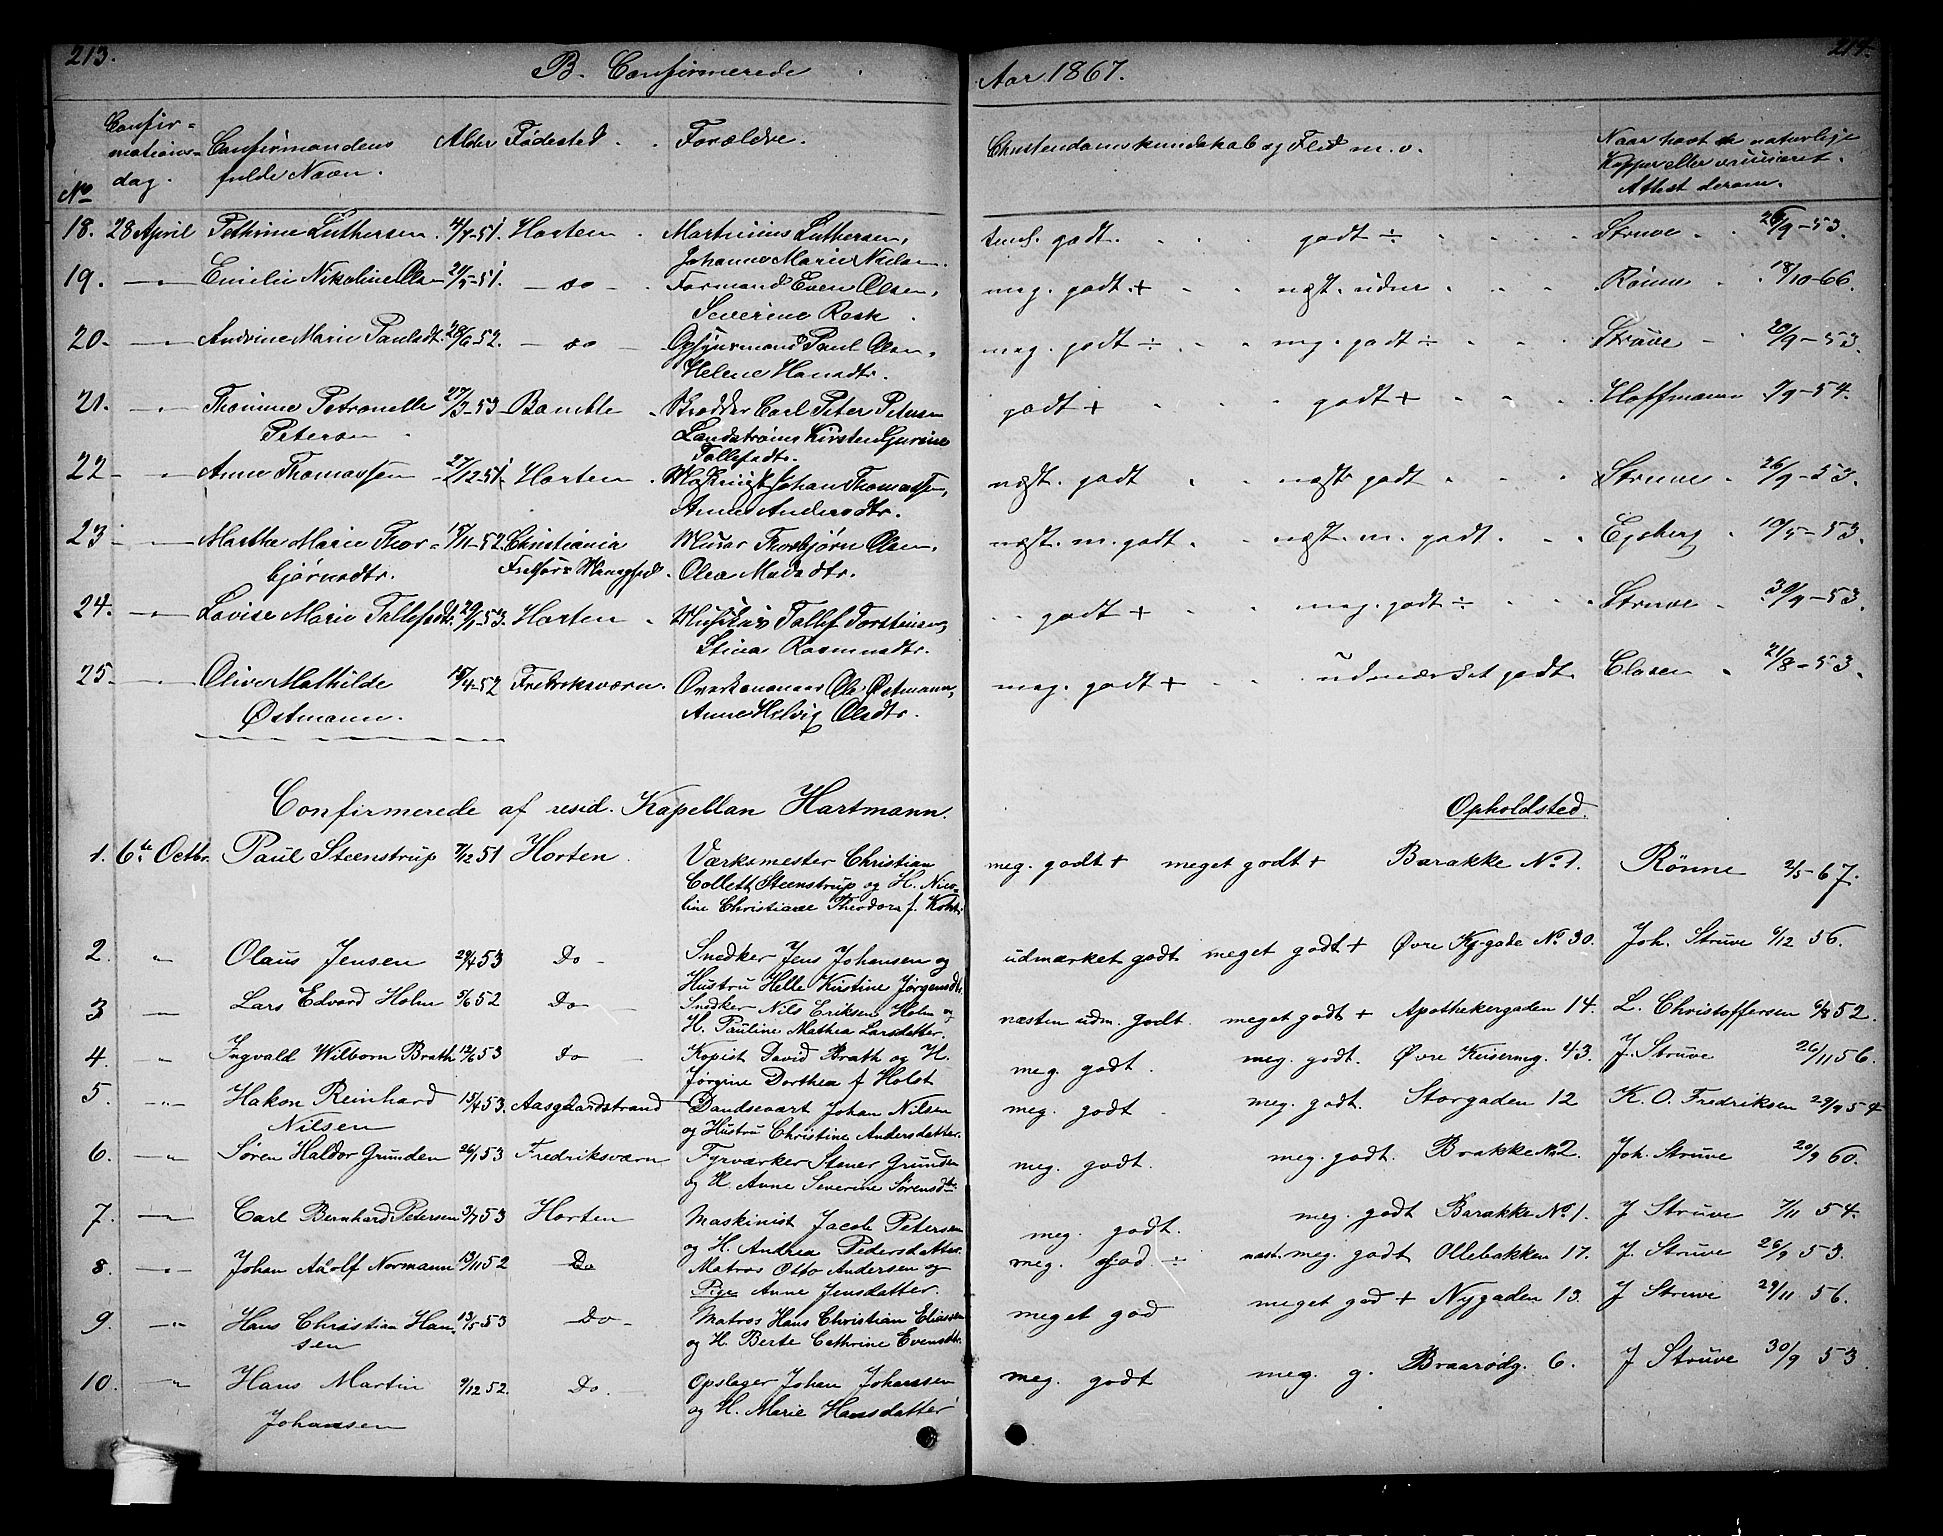 213.
B. Confirmerede
Aar 1867.
214.
No
Confir-
mations-
dag.
Confirmandens
fulde Navn.
Alder
Fødested.
Forældre.
Christendomskundskab og Flid m. v.
Naar havt de naturlige
Kopper eller vaccineret.
Attest derom.
18. 28 April Pethrine Luthersen. 4/7-51. Horten. Martinius Luthersen, temf. godt. godt ÷ Struve 26/9-53.
Johanne Marie Nielsen.
19. Emilie Nikoline Olsen 27/5-51. do Formand Even Olsen, meg. godt + næst. udm Rönne 18/10-66.
Severine Rask.
20. Andrine Marie Paulsdt. 28/6-52. do Opsynsmand Paul Olsen, meg. godt ÷ mg. godt ÷ Struve 20/9-53.
Helene Hansdtr.
21. Thomine Petronelle 27/3-53 Bamble Skrædder Carl Peter Petersen godt + godt + Hoffmann 7/9-54.
Petersen Landstrøms Kirsten Gurine
Tollefsdtr.
22 Anne Thomassen 27/12-51. Horten. Maskinist Johan Thomassen, næst. godt næst godt Struve 26/9-53.
Anne Andersdtr.
23 Martha Marie Thor- 15/11-52. Christiania Murer Thorbjørn Olsen, næst. m. godt næst. m. godt Egeberg 10/5-53.
bjørnsdtr. Olea Madsdtr.
24. Lovise Marie Tollefsdt. 29/1-53. Horten Musikus Tollef Torstensen, godt + meg. godt ÷ Struve 30/9-53.
Stina Rasmusdtr.
25. Olive Mathilde 15/4-52 Fredriksværn. Overkanoner Ole Østmann, meg. godt + udmærket godt. Clasen 21/8-53.
Østmann. Anne Helvig Olsdtr.
Confirmerede af resid. Kapellan Hartmann.
Opholdsted.
1. 6te Octbr. Paul Steenstrup 7/12 51 Horten. Værksmester Christian meg. godt + meget godt + Barakke No 1. Rönne 2/5-67.
Collett Steenstrup og H. Nico-
line Christiane Theodora f.
2. " Olaus Jensen 29/4 53 Do Snedker Jens Johansen og udmærket godt meget godt + Øvre Kj-gade No 30. Joh. Struve 6/12 56.
Hustru Helle Kirstine Jørgensdtr.
3 " Lars Edvard Holm 5/6 52 Do Snedker Nils Eriksen Holm og næsten udm. godt. meget godt + Apothekergaden 14. L. Christoffersen 6/8 52.
H. Pauline Mathea Larsdatter.
4. " Ingvald Wilborn Brath 12/6 53 Do Kopist David Brath og H. meg. godt meg. godt. Øvre Keiserveg. 43. J. Struve 26/11 56.
Jørgine Dorthea f Holst
5. " Hakon Reinhard 15/4 53. Aasgaardstrand Dandsevært Johan Nilsen meg. godt meg. godt. Storgaden 12 K. O. Fredriksen 29/9 54
Nilsen og Hustru Christine Andersdatter.
6. " Søren Haldor Grunden 26/1 53 Fredriksværn Fyrværker Staner Grunden meg. godt. meg. godt. Brakke No 2. Joh. Struve 20/9 60.
og H. Anne Severine Sørensdtr
7. " Carl Bernhard Petersen 3/7 53 Horten Maskinist Jacob Petersen meg. godt. meg. godt Barakke No 1. J Struve 7/11 54.
og H. Andrea Pedersdatter.
8. " Johan Adolf Normann 13/11 52 Do Matros Otto Andersen og meg. God ÷ næst. meg. godt Ollebakken 17. J. Struve 26/9 53.
Pige Anne Jensdatter.
9. " Hans Christian Han- 13/5 53 Do Matros Hans Christian Eliassen meget god meget god + Nygaden 13. J Struve 29/11 56.
sen og H. Berte Cathrine Evensdtr.
10. " Hans Martin 9/12 52. Do. Opslager Johan Johansen meg. godt meg. g. Braarødg. 6. J Struve 30/9 53.
Johansen og H. Marie Hansdatter